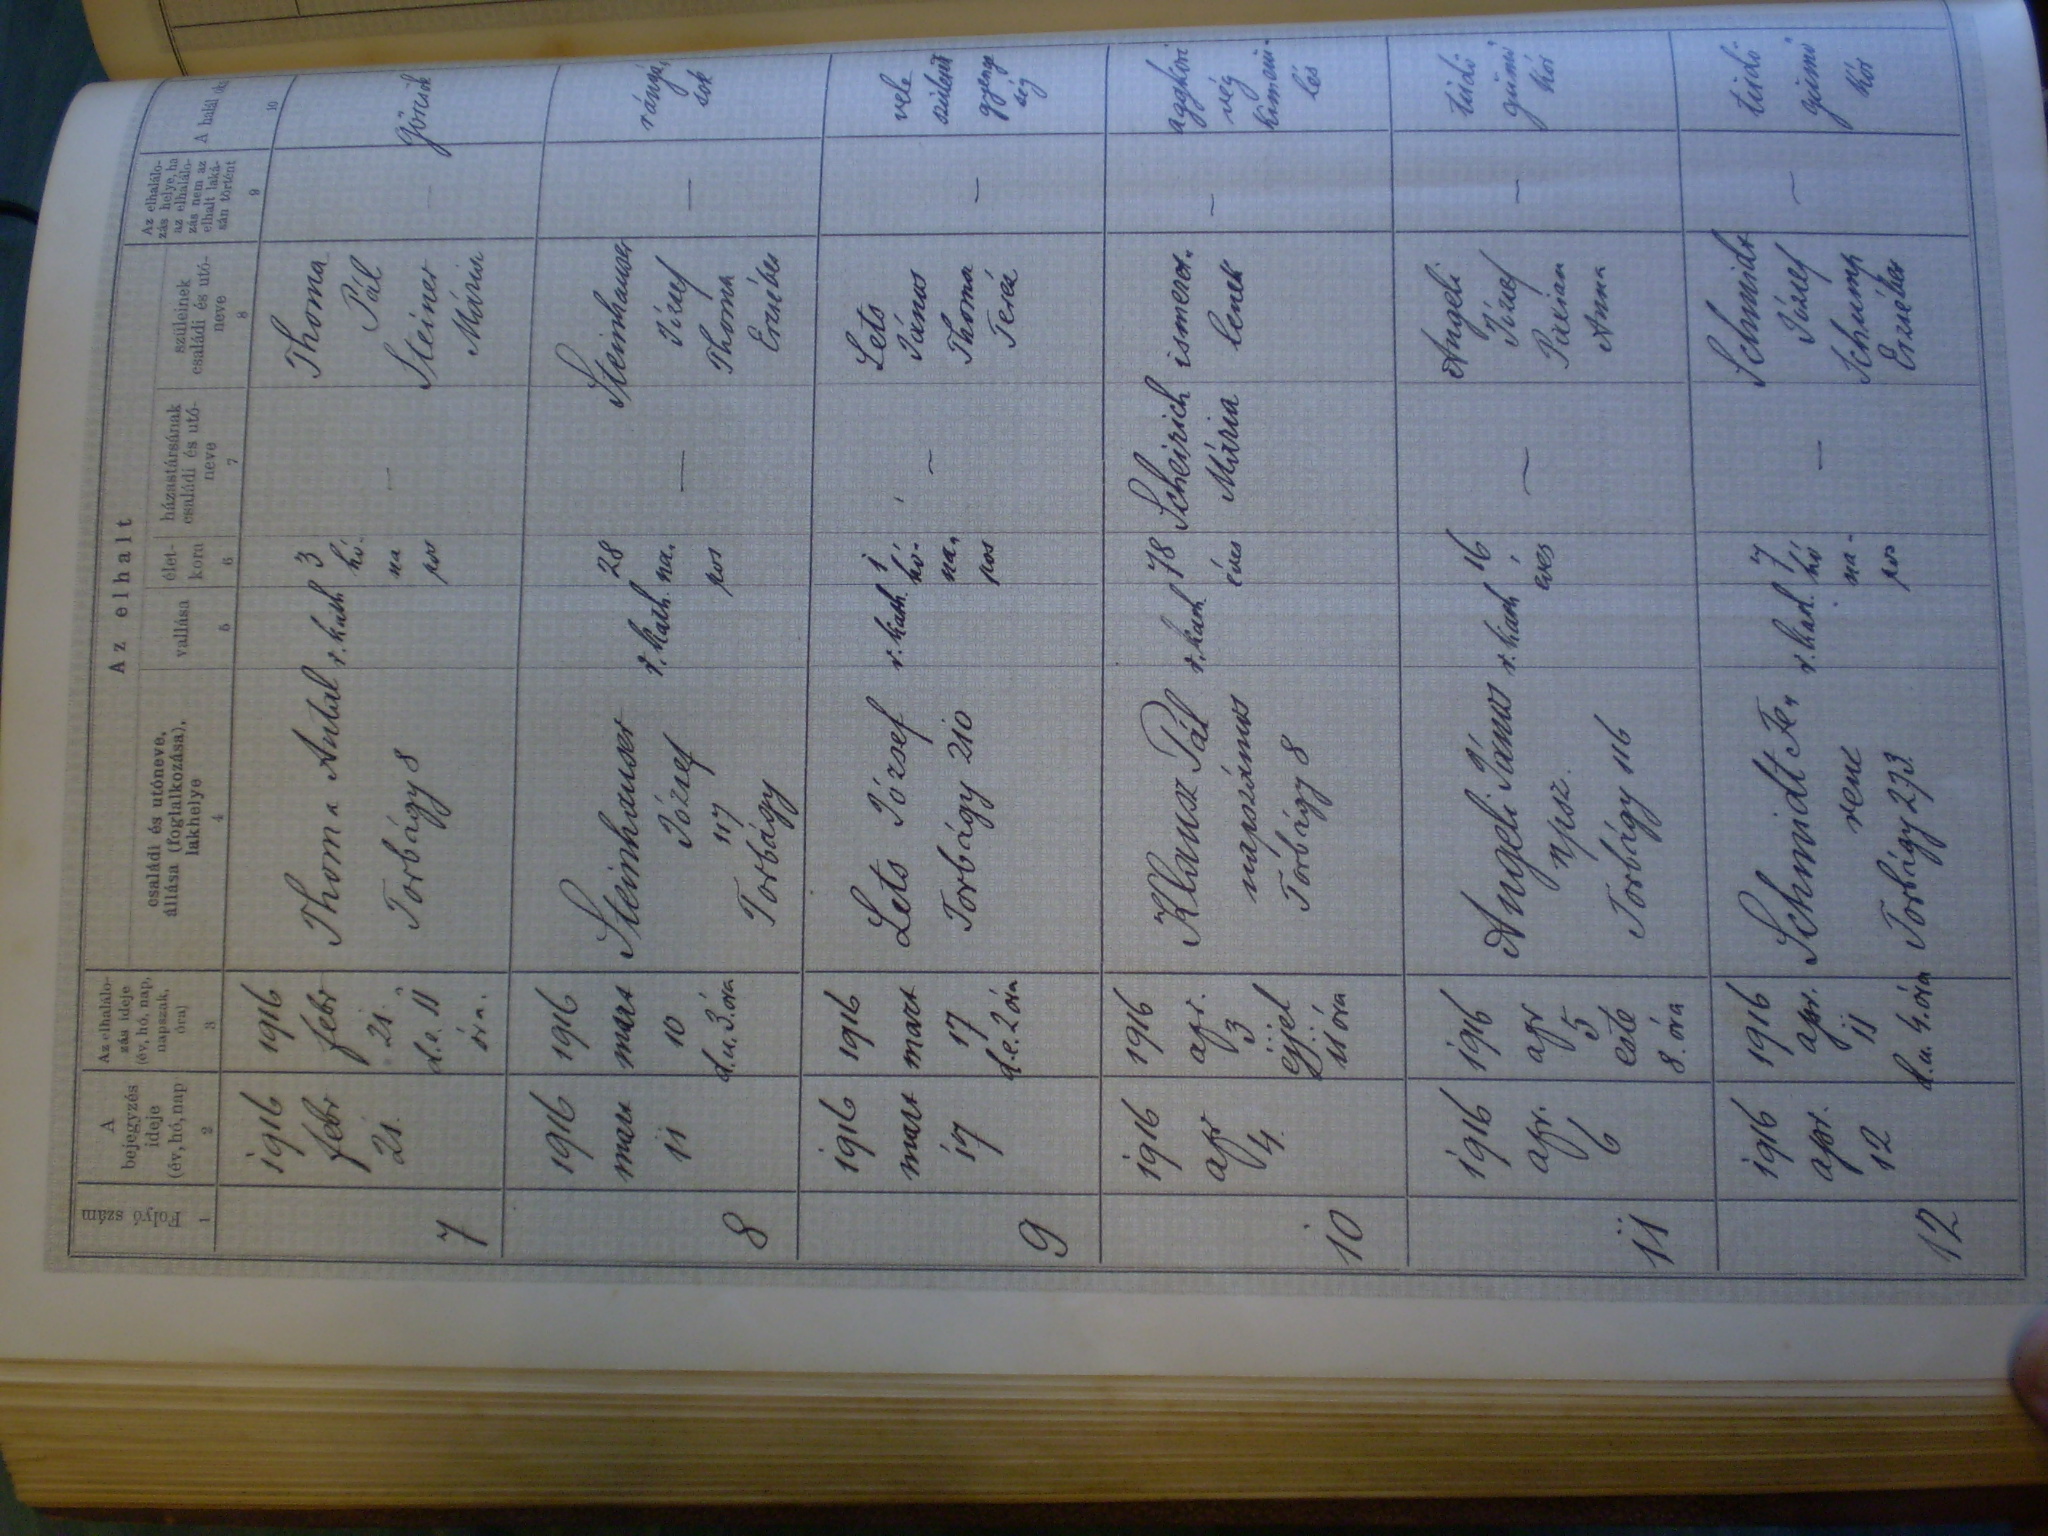 Az elhalt
Folyó szám
A
bejegyzés
ideje
(év, hó, nap
Az elhalálo-
zás ideje
(év, hó, nap,
napszak,
óra)
családi és utóneve,
állása (foglalkozása),
lakhelye
vallása
élet-
kora
házastársának
családi és utó-
neve
szüleinek
családi és utó-
neve
Az elhalálo-
zás helye, ha
az elhalálo-
zás nem az
elhalt laká-
sán történt
A halál ok
1
2
3
4
5
6
7
8
9
10
7
1916
febr
21.
1916
febr
21.
d.e. 11
óra.
Thoma Antal
Torbágy 8
r. kath
3
hó-
na
pos
—
Thoma
Pál
Steiner
Mária
—
görcsök
8
1916
mart
11
1916
mart
10
d.u. 3. óra
Steinhauser
József
117
Torbágy
r. kath.
28
na,
pos
—
Steinhauser
József
Thoma
Erzsébet
—
rángá,
sok
9
1916
mart
17
1916
mart
17
d.e. 2 óra
Lets József
Torbágy 210
r. kath.
1
hó-
na,
pos
—
Lets
János
Thoma
Teréz
—
vele
született
gyenge
ség
10
1916
apr
4.
1916
apr.
3
éjjel
11 óra
Klausz Pál
napszámos
Torbágy 8
r. kath
78
éves
Scheirich
Mária
ismeret.
lenek
—
aggkori
vég
kimerü-
lés
11
1916
apr.
6
1916
apr
5
este
8. óra
Angeli János
npsz.
Torbágy 116
r. kath
16
éves
—
Angeli
József
Anna
—
tüdő
gümő
kór
12
1916
apr.
12
1916
apr.
11
d.u. 4. óra
Schmidt Fe,
renc
Torbágy 273.
r. kath.
7
hó
na-
pos
—
Schmidt
József
Schump
Erzsébet
—
tüdő
gümő
kór